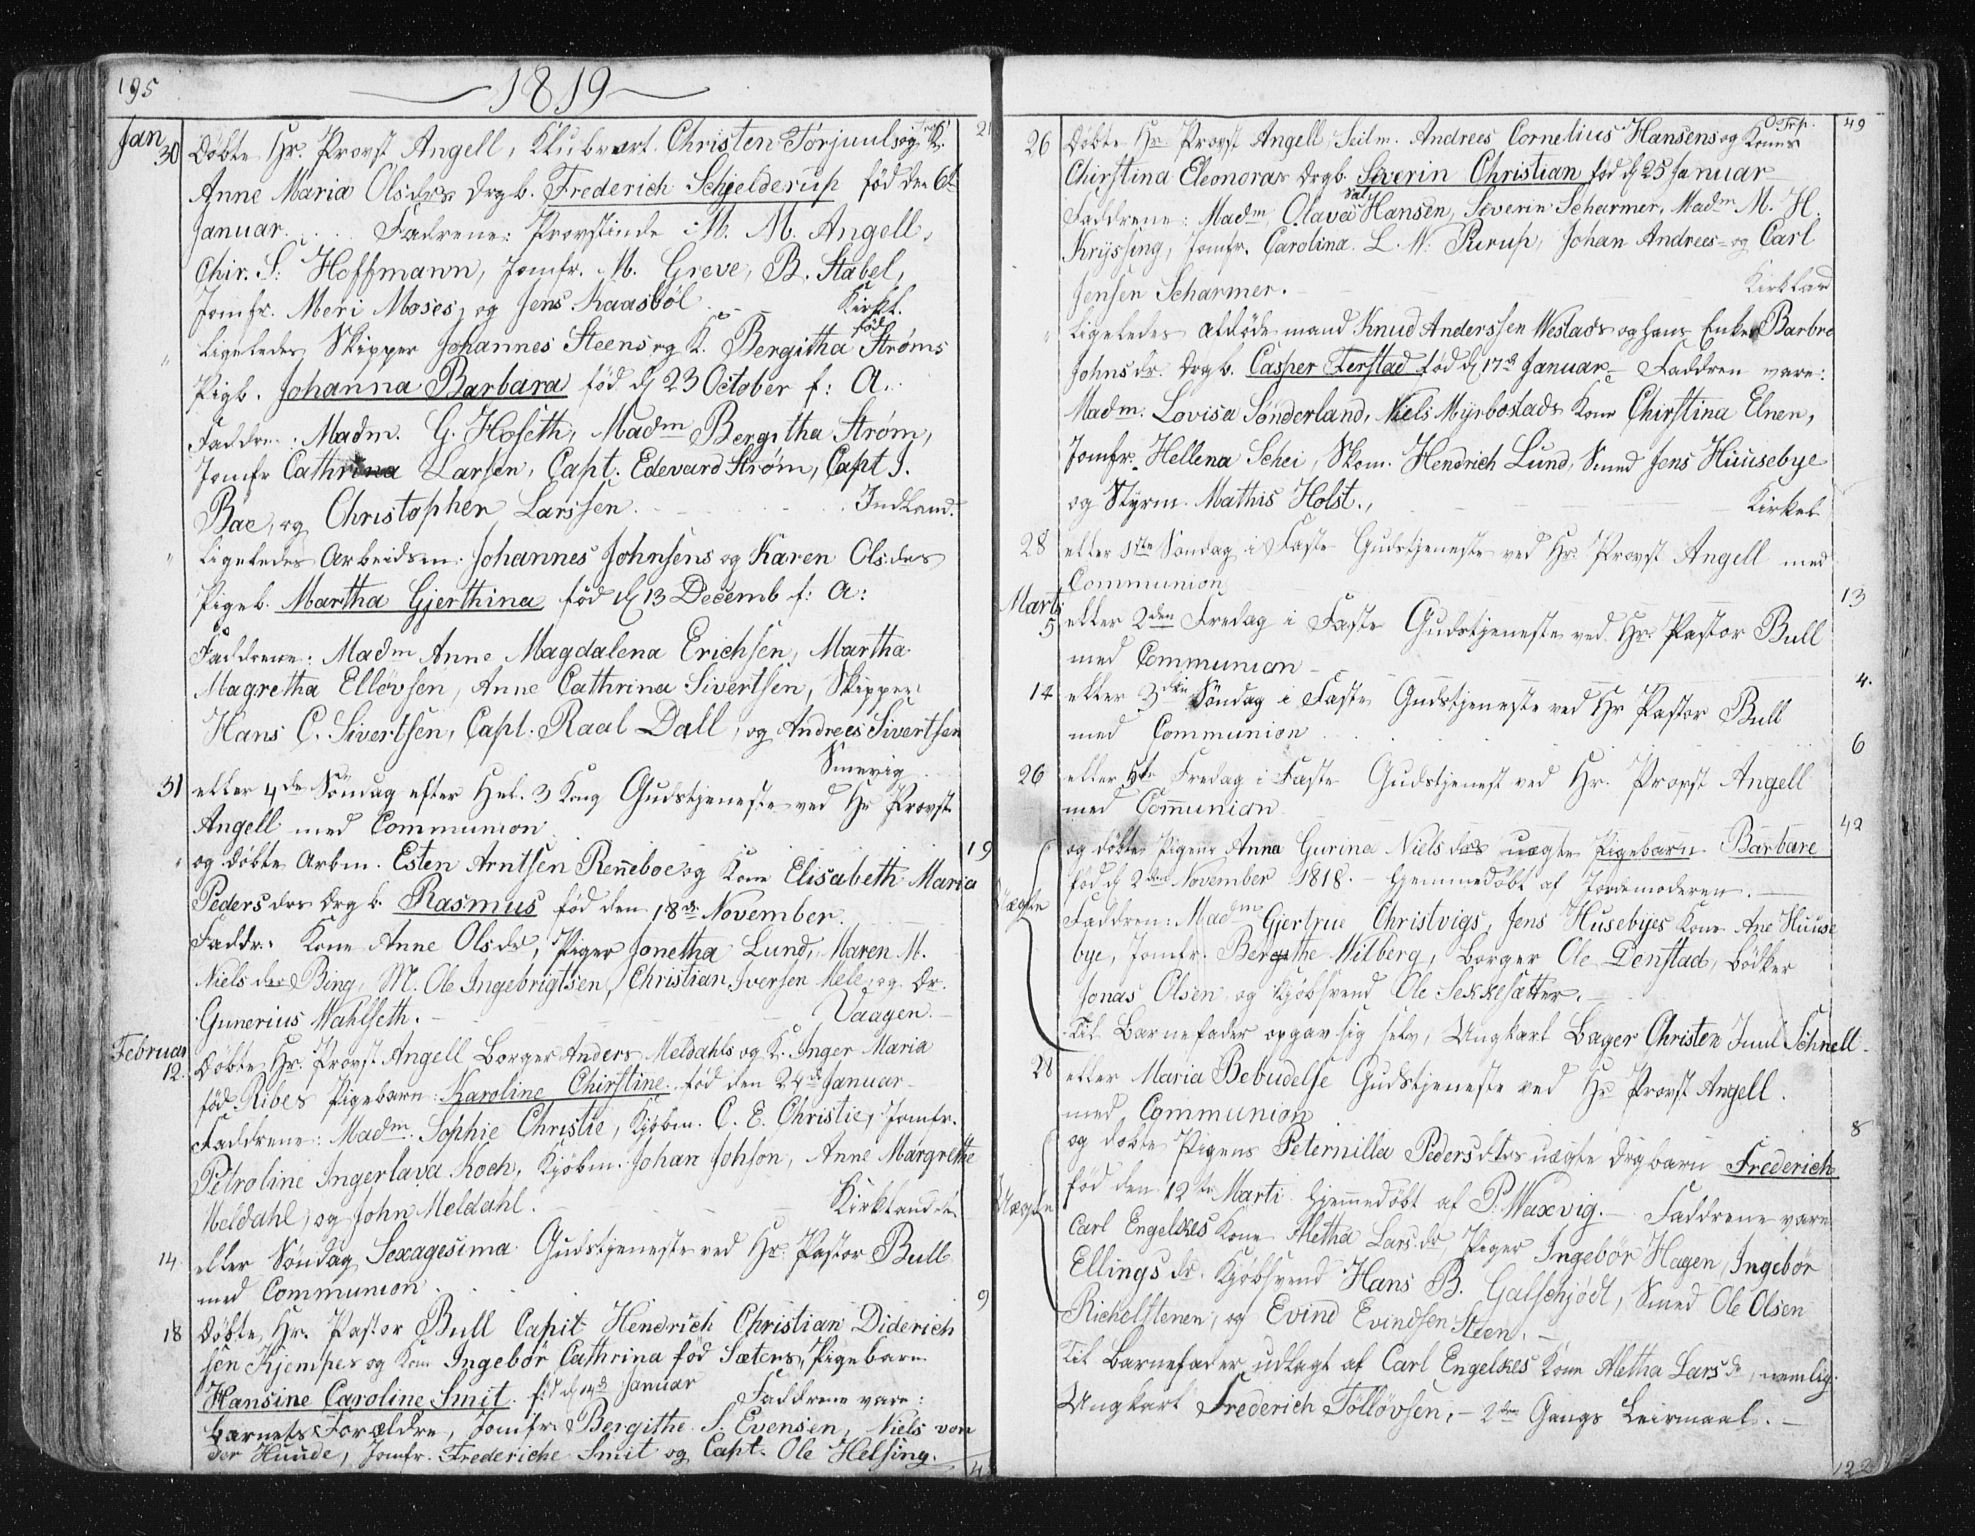 195
1819
Jan 30 Döbte Hr. Provst Angell, Klubvært Christen Torjuuls og K.
Anne Maria Olsdrs Drgb. Frederich Schjelderup föd den 6t
Januar. Fadrene: Provstinde M. M. Angell,
Chir. S. Hoffmann, Jomfr. M. Greve, B. Stabel,
Jomfr. Meri Moses, og Jens Kaasböl Kirkl.
Ligeledes Skipper Johannes Steens og K. Bergitha född Ströms
Pigb. Johanna Barbara föd d 23 October f: A.
Faddre: Madm. G. Hoseth, Madm Bergitha Ström,
Jomfr Cathrina Larsen, Capt: Edevard Ström, Capt J.
Bae, og Christopher Larssen. Indland.
Ligeledes Arbeidsm. Johannes Johnsens og Karen Olsdrs
Pigeb. Martha Gjerthina föd d 13 Decemb f: A:
Faddrene: Madm Anne Magdalena Erichsen, Martha
Magretha Ellövsen, Anne Cathrina Sivertsen, Skipper
Hans C. Sivertsen, Capt. Raal Dall, og Andrees Sivertsen
Smevig
31 eller 4de Söndag efter Hel. 3 Kong Gudstjeneste ved Hr Provst
Angell med Communion 19
og döbte Arbm. Esten Arntsen Renneboe og Kone Elisabeth Maria
Pedersdrs Drgb. Rasmus föd den 18d November.
Faddr: Kone Anne Olsdr, Piger Jonetha Lund, Maren M.
Nielsdr Bing, M. Ole Ingebrigtsen, Christian Iversen Mele, og Dr.
Gunerius Wahlseth. Vaagen.
Februar
12. Döbte Hr. Provst Angell Borger Anders Meldahls og K. Inger Maria
föd Ribes Pigebarn Karoline Chirstine föd den 24d Januar
Faddrene: Madm. Sophie Christie, Kjöbm. C. E. Christie, Jomfr.
Petroline Ingerlava Koch, Kjöbm. Johan Johson, Anne Margrethe
Meldahl, og John Meldahl. Kirklandet
14 eller Söndag Sexagesima Gudstjeneste ved Hr. Pastor Bull
med Communion 9
18 Döbte Hr. Pastor Bull Capit Hendrich Christian Diderich
sen Kjempes og Kone Ingebör Cathrina föd Sæters, Pigebarn
Hansine Caroline Smit. föd d 14d Januar Faddrene vare:
Barnets Forældre, Jomfr. Bergithe S. Evensen, Niels von
der Hunde, Jomfr. Frederiche Smit og Capt. Ole Helsing.
26 Döbte Hr Provst Angell, Seilm. Andrees Cornelius Hansens og Kones 49
Chirstina Eleonoras Drgb. Siverin Christian föd d 25 Januar
Faddrene: Madm Olava Hansen, Siverin Scharmer, Madm M. H.
Kryssing, Jomfr. Carolina L. N. Rurup, Johan Andrees- og Carl
Jensen Scharmer. Kirkland
Ligeledes afdöde mand Knud Anderssen Westads og hans Enke Barbro
Johnsdr Drgb. Casper Terstad föd d 17d Januar Faddren vare:
Madm. Lovisa Sönderland, Niels Myrbostads Kone Chirstina Elnen,
Jomfr. Hellena Schei, Skom. Hendrich Lund, Smed Jens Huusebye
og Styrm. Mathis Holst. Kirkel
28 eller 1ste Söndag i Faste Gudstjeneste ved Hr. Provst Angell med
Communion 13
Marti
5 eller 2den Fredag i Faste Gudstjeneste ved Hr. Pastor Bull
med Communion 4.
14 eller 3die Söndag i Faste Gudstjeneste ved Hr Pastor Bull
med Communion 6
26 eller 5te Fredag i Faste Gudstjenest ved Hr. Provst Angell
med Communion 42
og döbte Pigens Anna Gurina Nielsdrs uægte Pigebarn Barbare
föd d 2den November 1818. - Hjemmedöbt af Jordemoderen.
Uægte
Faddren: Madm Gjertrue Christvigs, Jens Husebyes Kone Ane Huuse
bye, Jomfr. Bergithe Wilberg, Borger Ole Denstad, Bödker
Jonas Olsen og Kjöbsvend Ole Sekkesætter.
Til Barnefader opgav sig selv, Ungkarl Bager Christen Juul Schnell
28 eller Maria Bebudelse Gudstjeneste ved Hr Provst Angell.
med Communion 8
og döbte Pigens Peternilla Pedersdtrs uægte Drgbarn Frederich
föd den 12te Marti Hjemmedöbt af P. Waxvig. Faddrene vare
Uægte
Carl Engelkes Kone Aletha Larsdr, Piger Ingebör Hagen, Ingebör
Ellingsdr. Kjöbsvend Hans B. Galschjödt, Smed Ole Olsen
Richelstenen, og Evind Evindsen Steen.
Til Barnefader udlagt af Carl Engelkes Kone Aletha Larsdr, nemlig:
Ungkarl Frederich Tollövsen, - 2den Gangs Leiermaal.
122